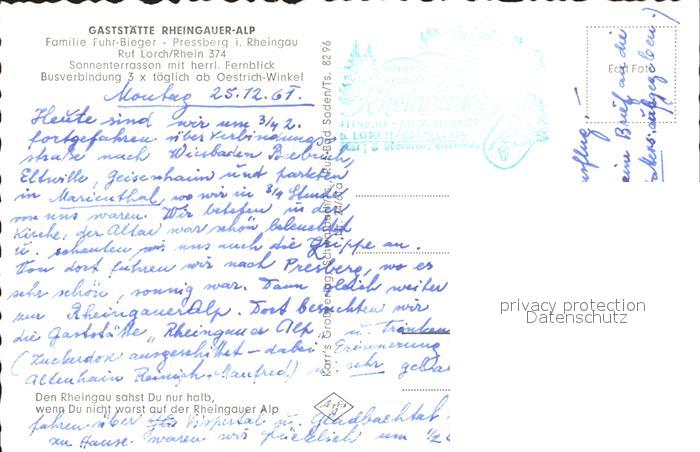 GASTSTÄTTE RHEINGAUER-ALP
Familie Fuhr-Bieger - Pressberg i. Rheingau
Ruf Lorch/Rhein 374
Sonnenterrassen mit herrl. Fernblick
Busverbindung 3 x täglich ab Oestrich-Winkel
Montag 25.12.67.
Heute sind wir um 3/4 2.
fortgefahren über Verbindungs
straße nach Wiesbaden Biebrich,
Eltville, Geisenheim und parkten
in Marienthal, wo wir in 3/4 Stunde
von uns waren. Wir beteten in der
Kirche, der Altar war schön beleuchtet
u. schauten wir uns auch die Grippe an.
Von dort fuhren wir nach Presberg, wo es
sehr schön, sonnig war. Dann gleich weiter
zur RheingauerAlp. Dort besuchten wir
die Gaststätte „Rheingauer Alp" u. tranken
(Zuckerdose ausgeschüttet - dabei Erinnerung
Altenhain Heinrich - Manfred) u. sehr
Den Rheingau sahst Du nur halb,
wenn Du nicht warst auf der Rheingauer Alp
fuhren über Wispertal u.
zu Hause. waren wir glücklich um 1/2
Karr's Großverlag, Bad Soden/Ts. Ruf 8296
Agfa
Rheingauer Alp
LORCH/RH. TEL. 374
Ausflug, -
eine Brief an die
ausgegeben!)
Echt Foto
privacy protection
Datenschutz